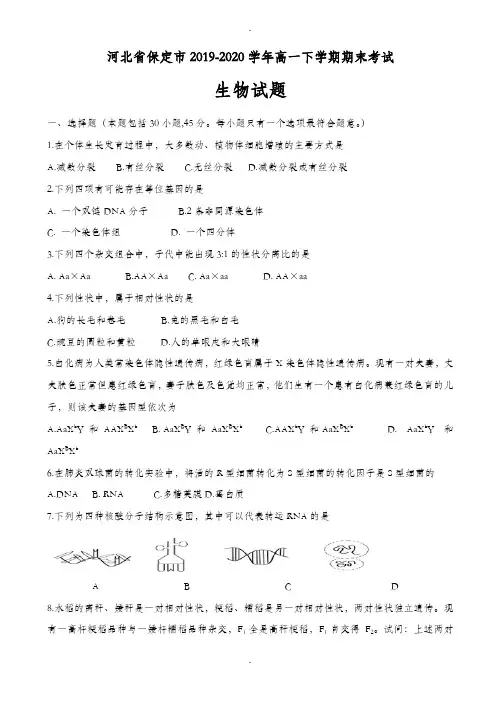 河北省保定市2019-2020学年高一下学期期末考试
生物试题
一、选择题（本题包括30小题,45分。每小题只有一个选项最符合题意。）
1.在个体生长发育过程中，大多数动、植物体细胞增殖的主要方式是
A.减数分裂 B.有丝分裂 C.无丝分裂 D.减数分裂或有丝分裂
2.下列四项有可能存在等位基因的是
A. 一个双链DNA分子 B.2条非同源染色体
C. 一个染色体组 D. 一个四分体
3.下列四个杂交组合中，子代中能出现3:1的性状分离比的是
A. Aa×Aa B.AA×Aa C. Aa×aa D. AA×aa
4.下列性状中，属于相对性状的是
A.狗的长毛和卷毛 B.兔的黑毛和白毛
C.豌豆的圆粒和黄粒 D.人的单眼皮和大眼睛
5.白化病为人类常染色体隐性遗传病，红绿色盲属于X染色体隐性遗传病。现有一对夫妻，丈
夫肤色正常但患红绿色盲，妻子肤色及色觉均正常，他们生有一个患有白化病兼红绿色盲的儿
子，则该夫妻的基因型依次为
A.AaXbY 和 AAXBXb B. AaXBY 和 AaXBXb C.AAXbY 和AaXBXb D. AaXbY 和
AaXBXb
6.在肺炎双球菌的转化实验中，将活的R型细菌转化为S型细菌的转化因子是S型细菌的
A.DNA B. RNA C.多糖荚膜 D.蛋白质
7.下列为四种核酸分子结构示意图，其中可以代表转运RNA的是
A B C D
8.水稻的高秆、矮秆是一对相对性状，粳稻、糯稻是另一对相对性状，两对性状独立遗传。现
有一高秆粳稻品种与一矮秆糯稻品种杂交，F1全是高秆粳稻，F1自交得F2。试问：上述两对